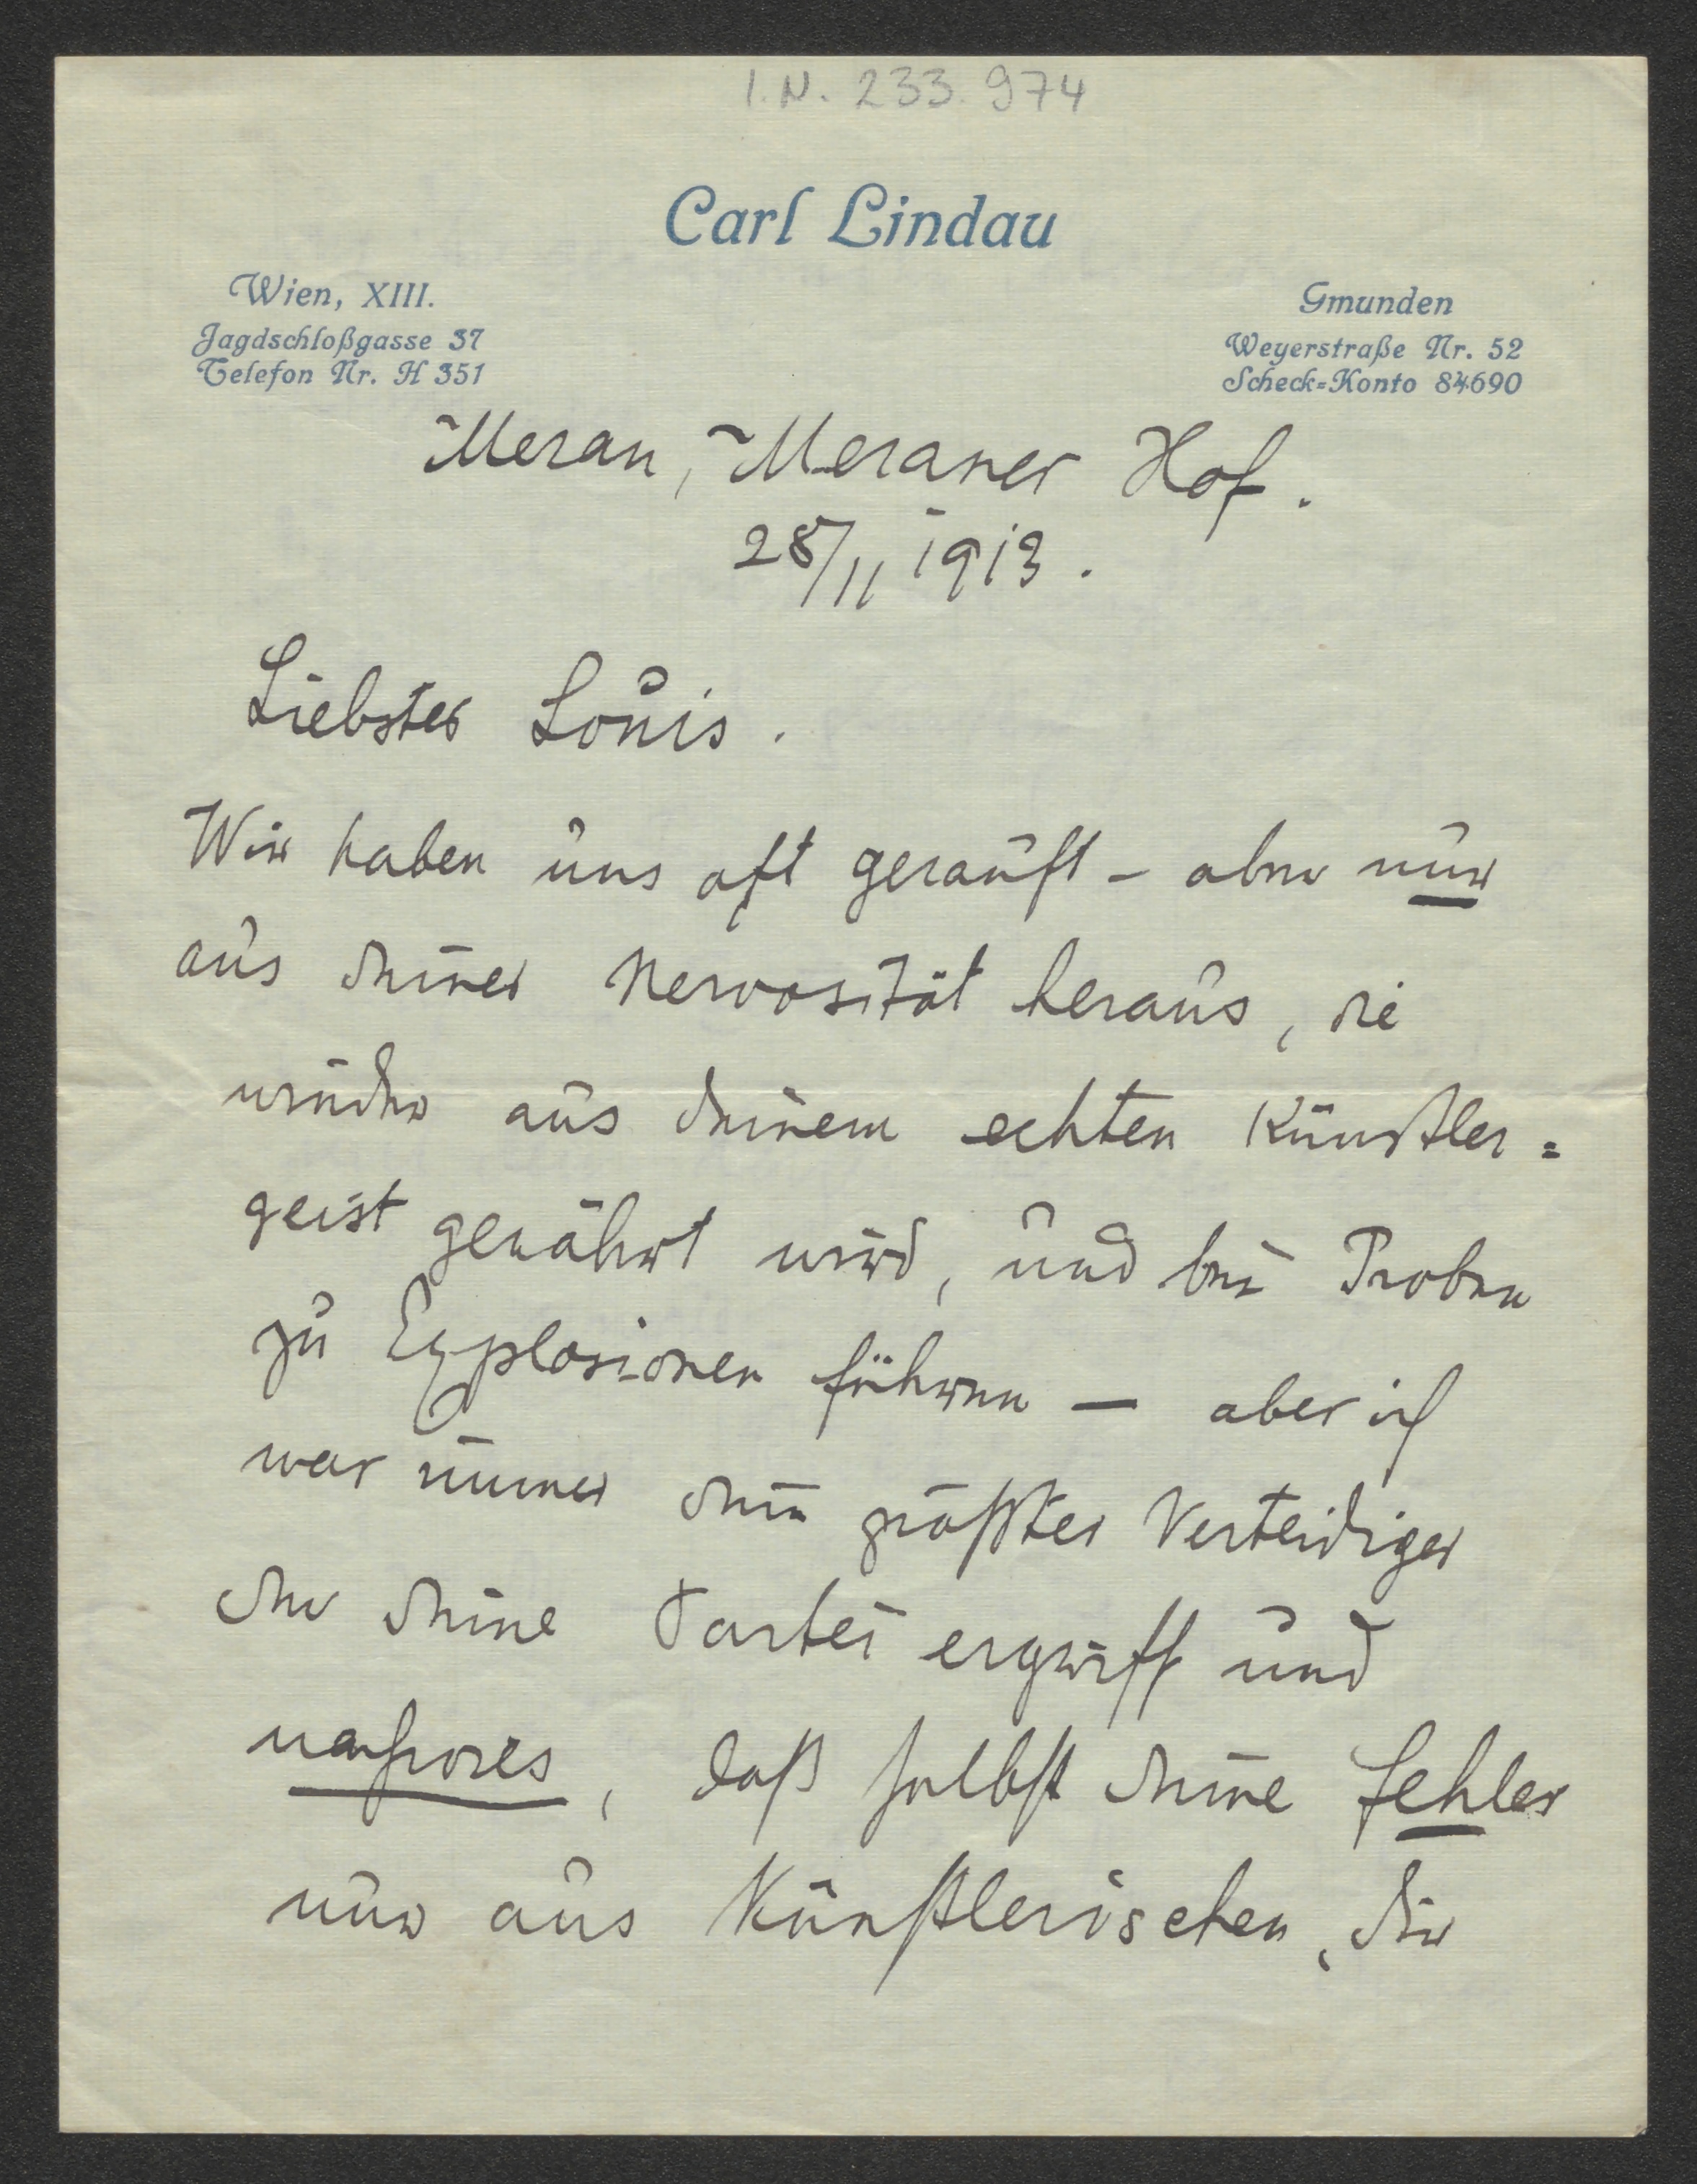 I.N. 233.974
Carl Lindau
Wien, XIII.
Jagdschloßgasse 37
Telefon Nr. H 351
Gmunden
Weyerstraße Nr. 52
Scheck=Konto 84690
Meran, Meraner Hof.
28/11 1913.
Liebster Louis.
Wir haben uns oft gerauft – aber nur
aus deiner Nervosität heraus, die
wieder aus deinem echten Künstler=
geist genährt wird, und bei Proben
zu Explosionen führen — aber ich
war immer dein größter Verteidiger
der deine Partei ergriff und
nachwies, daß selbst deine Fehler
nur aus Künstlerischen, dir